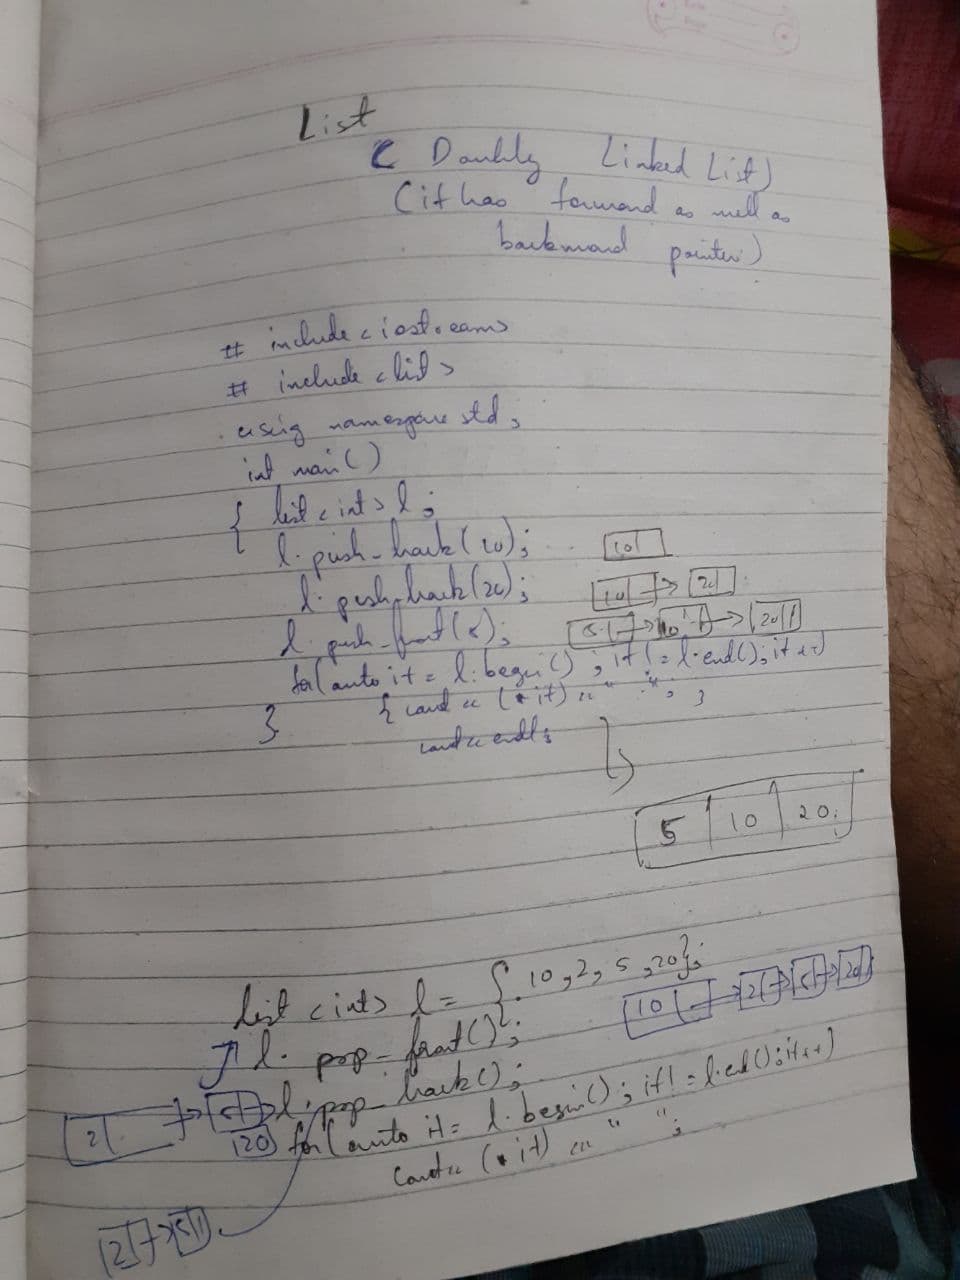 List
( Doubly Linked List)
(it has forward as well as
backward pointer)
# include <iostream>
# include <list>
using namespace std;
int main()
{ list <int> l;
l. push_back(10); 10
l. push_back(20); 10 → 20
l. push_front(5); 5 → 10 → 20
for(auto it = l.begin() ; it != l.end(); it++)
{ cout << (*it) << " "; }
} cout << endl;
5 10 20
list <int> l = { 10, 2, 5, 20};
10 → 2 → 5 → 20
l. pop_front();
l. pop_back();
2 → 5 → 20
for(auto it= l.begin(); it != l.end(); it++)
cout << (*it) << " ";
2 → 5